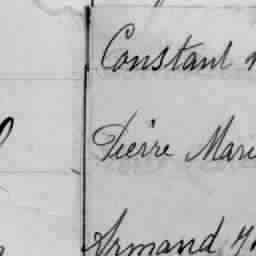 Constant
Pierre Marie
Armand